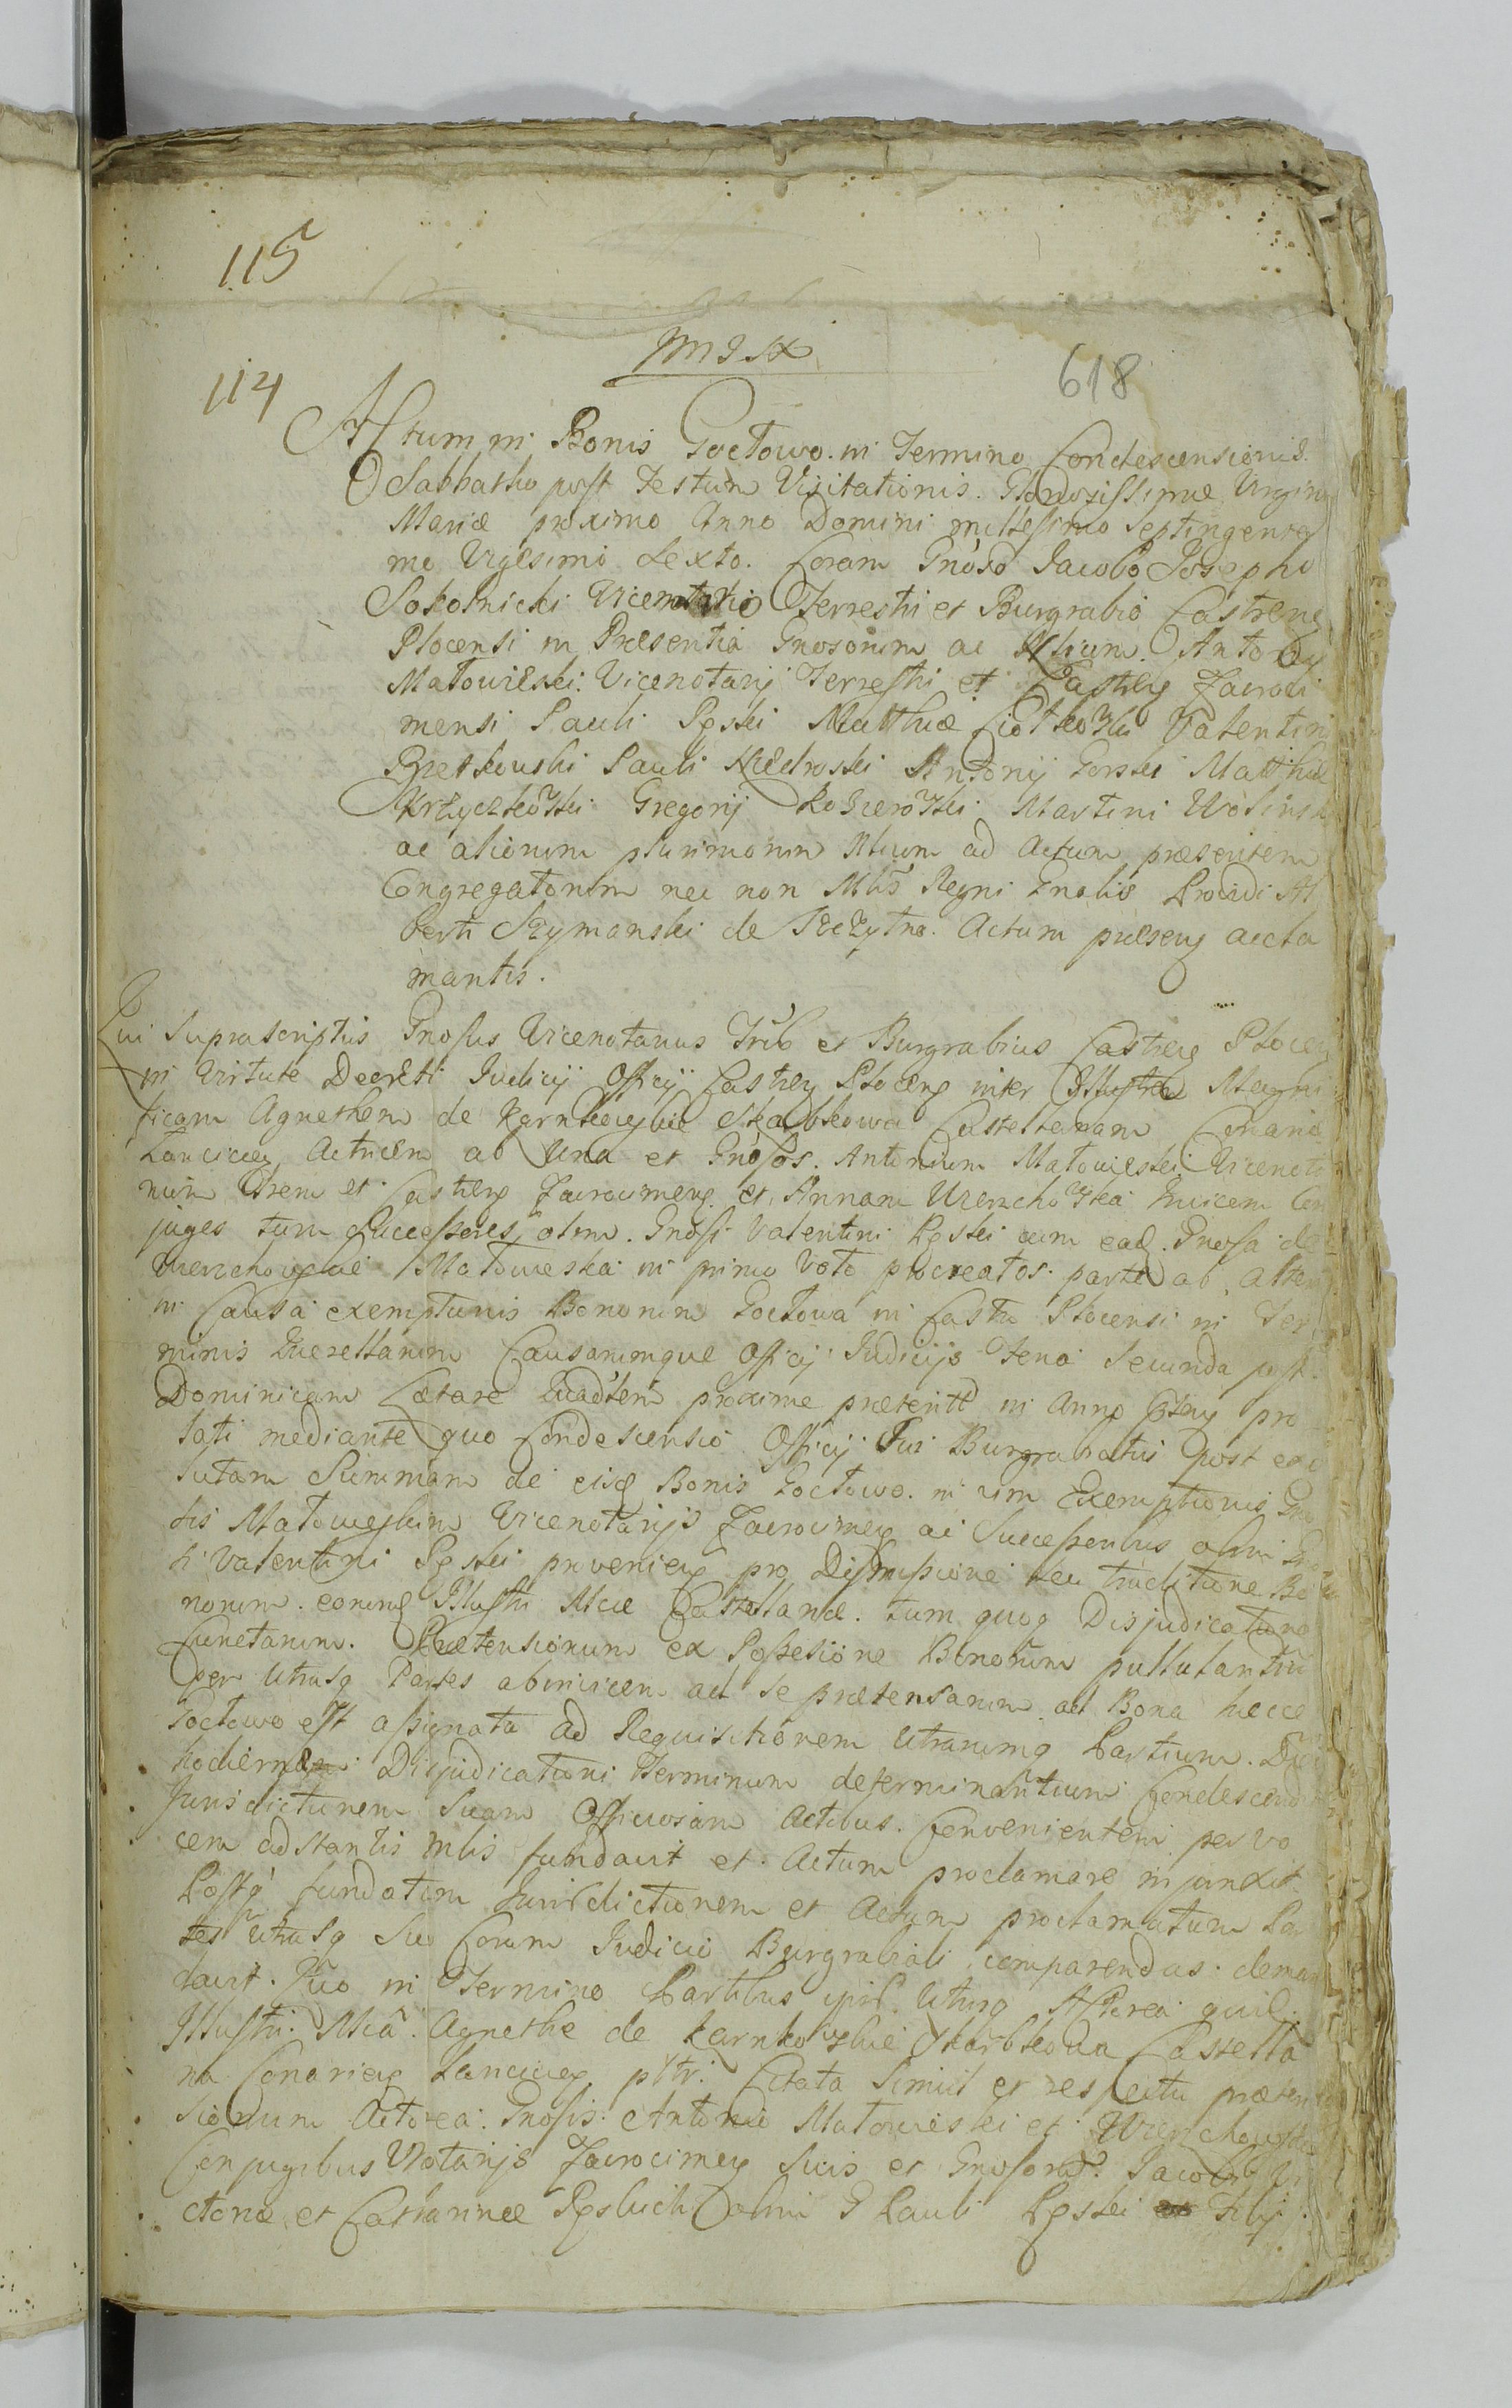 115
618
114
Actum in Bonis Goctowo in Termino Condescensionis
Sabbatho post Festum Visitationis Gloriosissimae Virginis
Mariae proximo Anno Domini millesimo Septingentesi
mo Vigesimo Sexto. Coram Gnoso Jacobo Josepho
Sokolnicki Vicenotario Terrestri et Burgrabio Castren
Plocensi in Praesentia Gnosorum ac Nlium Antonij
Matowieski Vicenotarij Terrestri et Castren Zacroci
mensi Pauli Matthiae Valentini
Pauli Antonij Gorski Matthiae
Gregorij Martini Wolinski
ac aliorum plurimorum Nlium ad Actum praesentem
Congregatorum nec non Mlis Regni Gnalis Providi Al
berti Szymanski de Actum praesens accla
mantis.
Qui Suprascriptus Gnosus Vicenotarius Trlis et Burgrabius Castren Plocen
in Virtute Decreti Judicij Officij Castren Plocens inter Illustrem Magni
ficam Agnethem de Karnkowskie Skarbkowa Castellanam Conarien
Lancicien Actricem ab Una et Gnosos Antonium Matowieski Vicenota
rium Trem et Castren Zacrocimens et Annam invicem Con
juges tum Successores olim Gnosi Valentini cum ead Gnosa de
Matowieska in primo Voto procreatos parte ab altera
in Causa exemptionis Bonorum Goctowa in Castro Plocensi in Ter
minis Querellarum Causarumque Officij Judicijs Feria Secunda post
Dominicam Laetare proxime praeterit in Anno pro
lati mediante quo Condescensio Officij Sui Burgrabialis post exo
lutam Summam de eisd Bonis Goctowo in vim Exemptionis Gno
sis Matowieskim Vicenotarijs Zacrocimens ac Successoribus olim Gno
si Valentini provenien pro seu traditione Bo
norum eorund Illustri Mcae Castellanae tum quoq Disjudicationem
Cunctarum Praetensionum ex Possessione Bonorum pullulantium
per Utrasq Partes abinvicem ad se praetensarum ad Bona haecce
Goctowo est assignata ad Requisitionem Utrarumq Partium Diei
hodiernae Disjudicationi Terminum determinantium Condescendit
Jurisdictionem Suam Officiosam Actibus Convenientem per vo
cem adstantis Mlis fundavit et Actum proclamare injunxit
Postq fundatam Jurisdictionem et Actum proclamatum Par
tes Utrasq Suo Coram Judicio Burgrabiali comparendas deman
davit. Quo in Termino Partibus ipsis Utrisq Actorea quid
Illustri Mca Agnethe de Karnkowskie Skarbkowa Castella
na Conarien Lancicien Citata Simul et respectu praeten
sionum Actorea Gnosis Antonio Matowieski et
Conjugibus Vnotarijs Zacrocimen Suis et Gnosorum Jacobi Vi
ctoriae et Catharinae olim G Pauli Filij